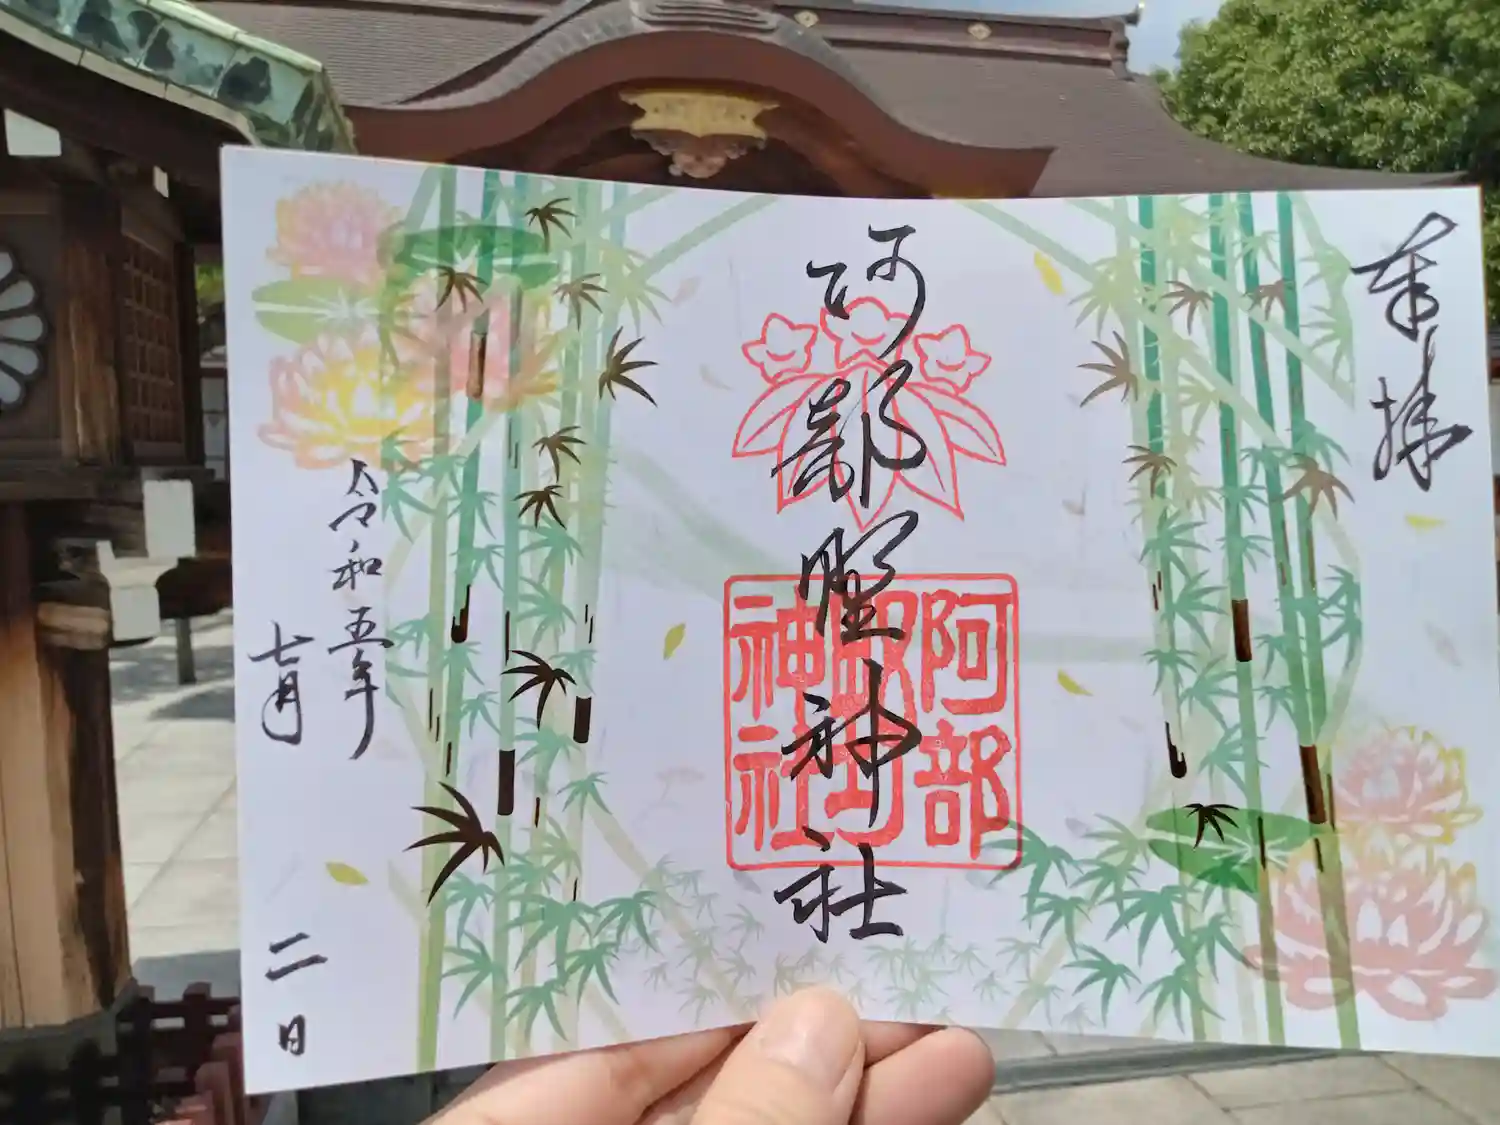 奉拝
阿部野神社
阿部
神社
令和五年
七月二日